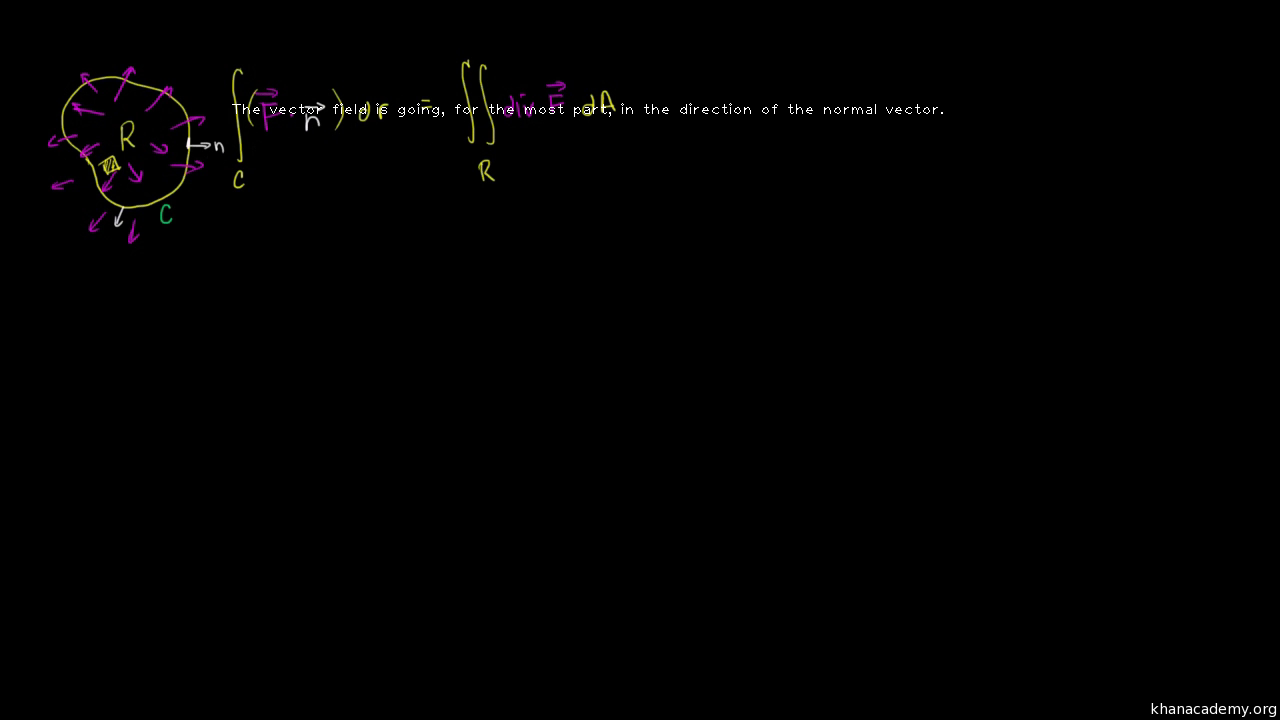 R
n
C
∫ ( F⃗ · n⃗ ) dr = ∬ div F⃗ dA
C R
The vector field is going, for the most part, in the direction of the normal vector.
khanacademy.org